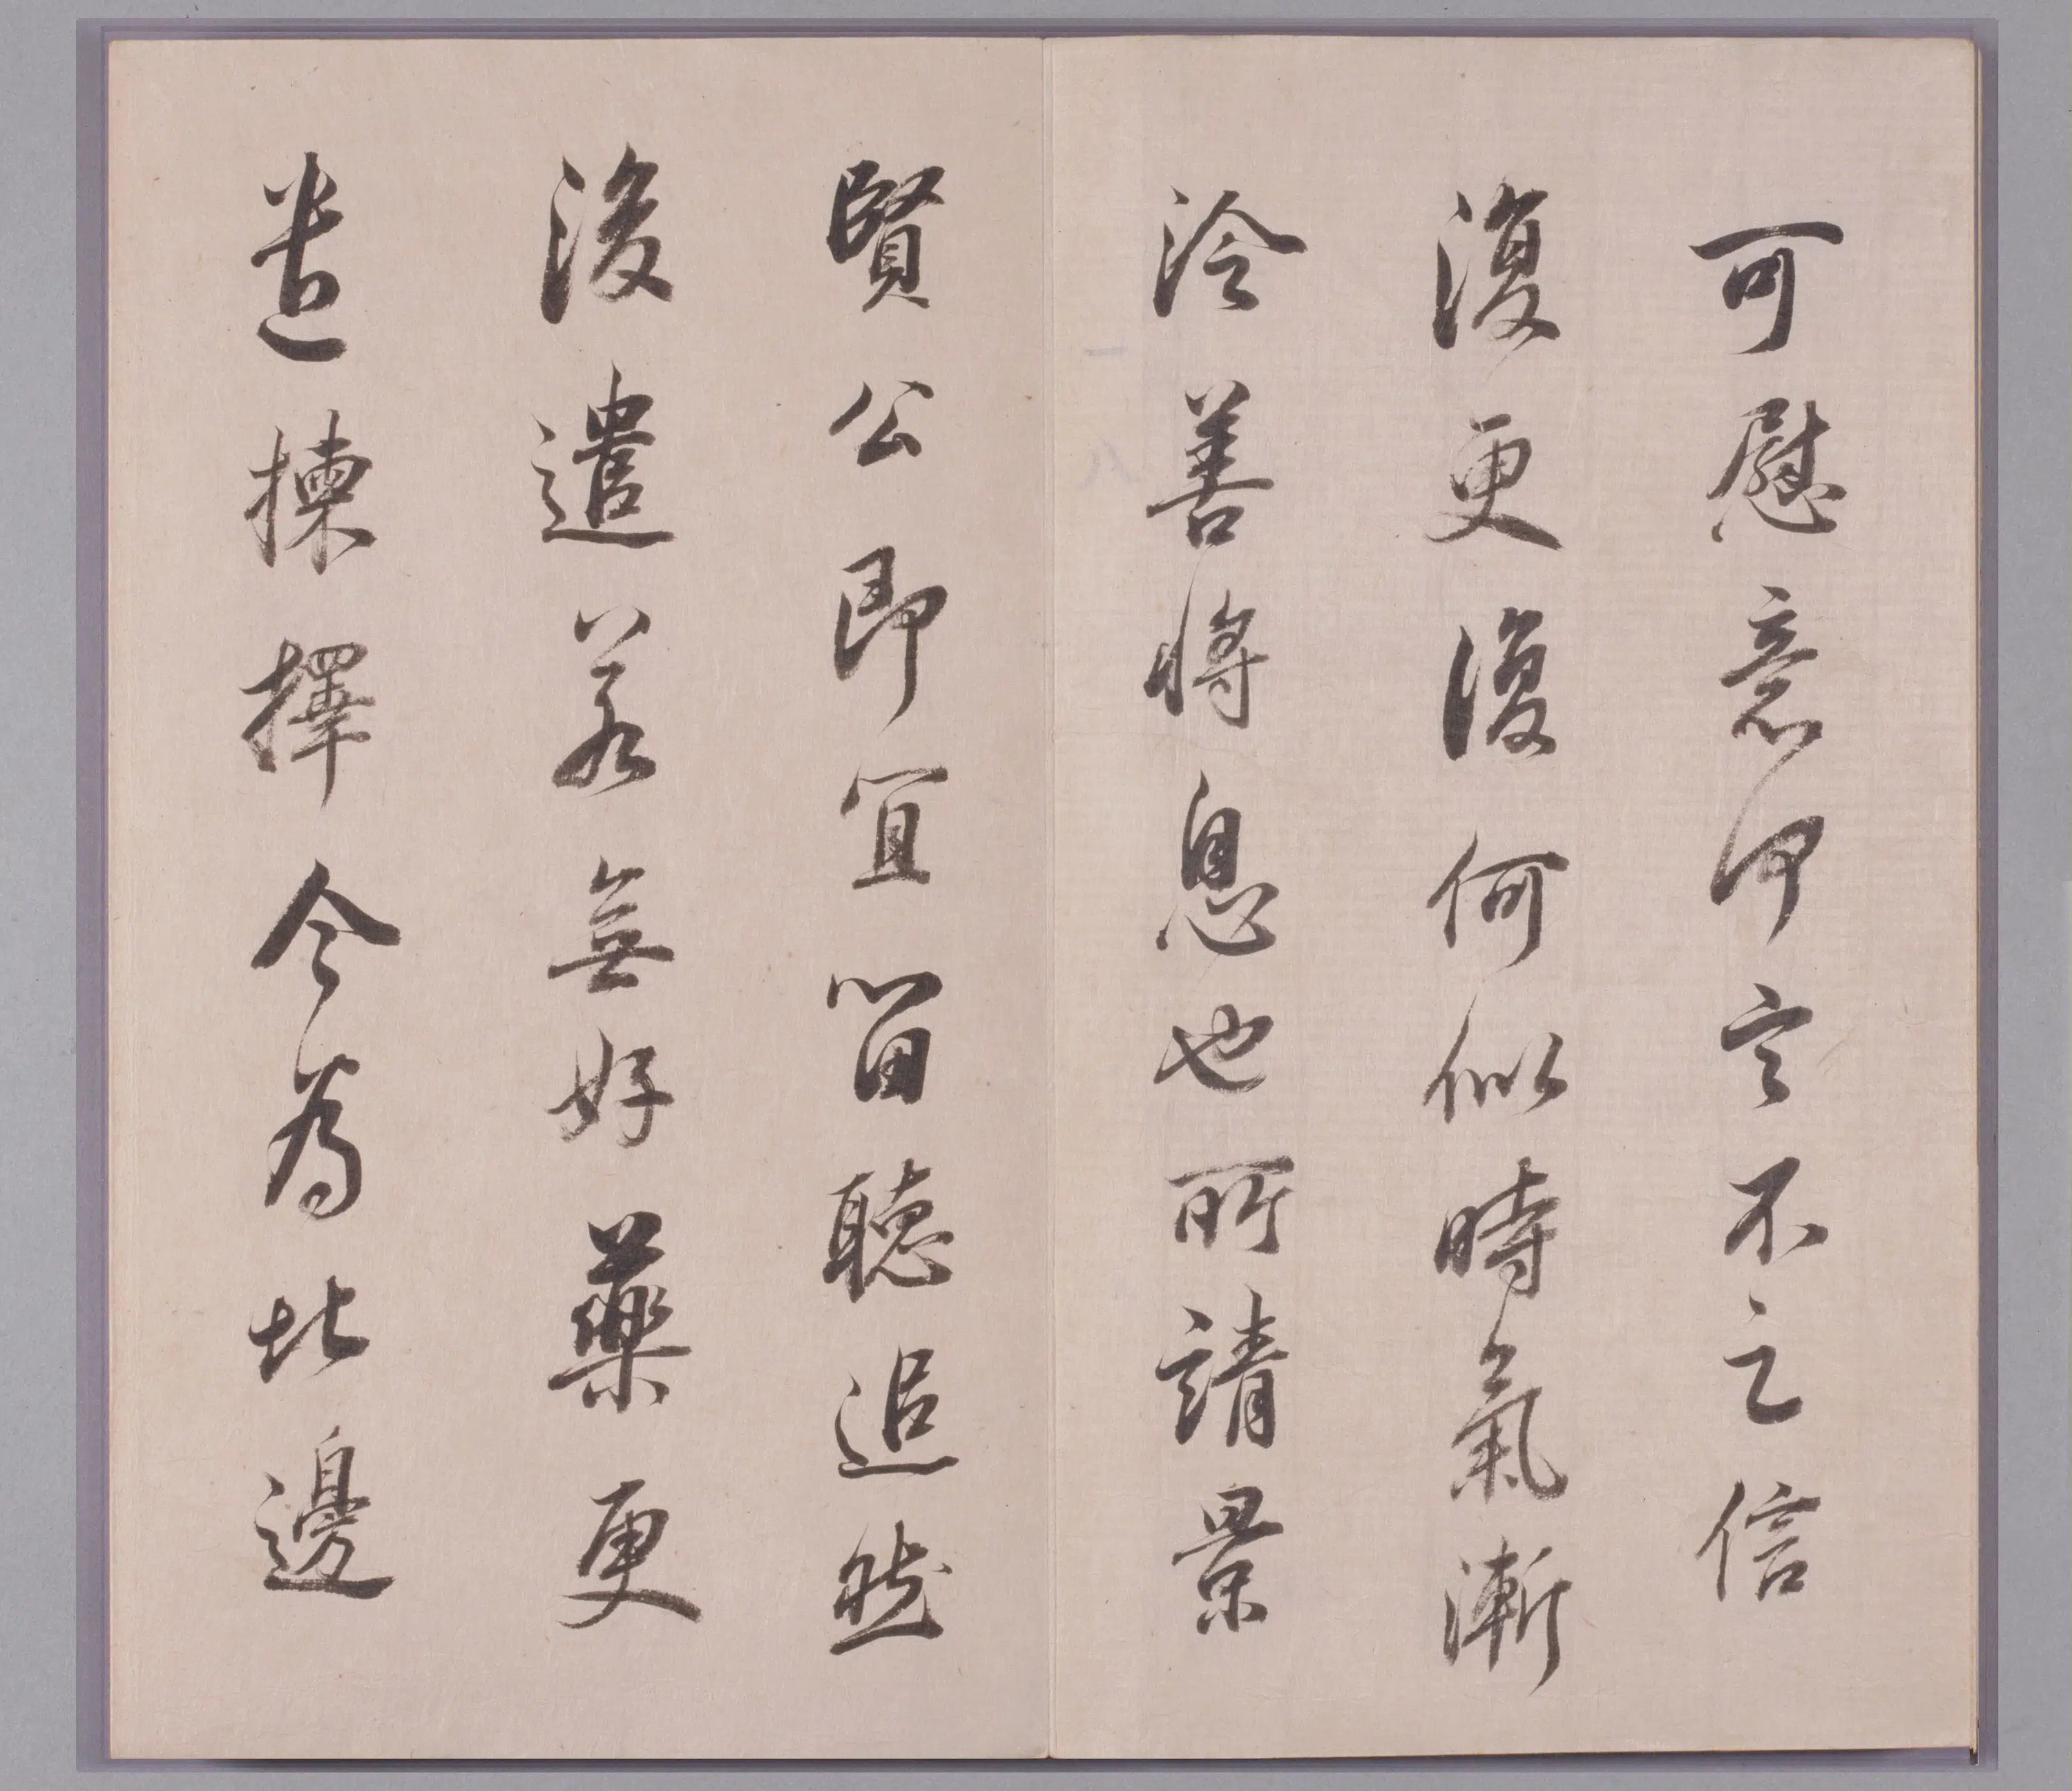 可慰意何言不之信
復更復何似時氣漸
冷善將息也所請景
賢公即宜留聽追然
後遣若無好藥更
遣揀擇今為北邊